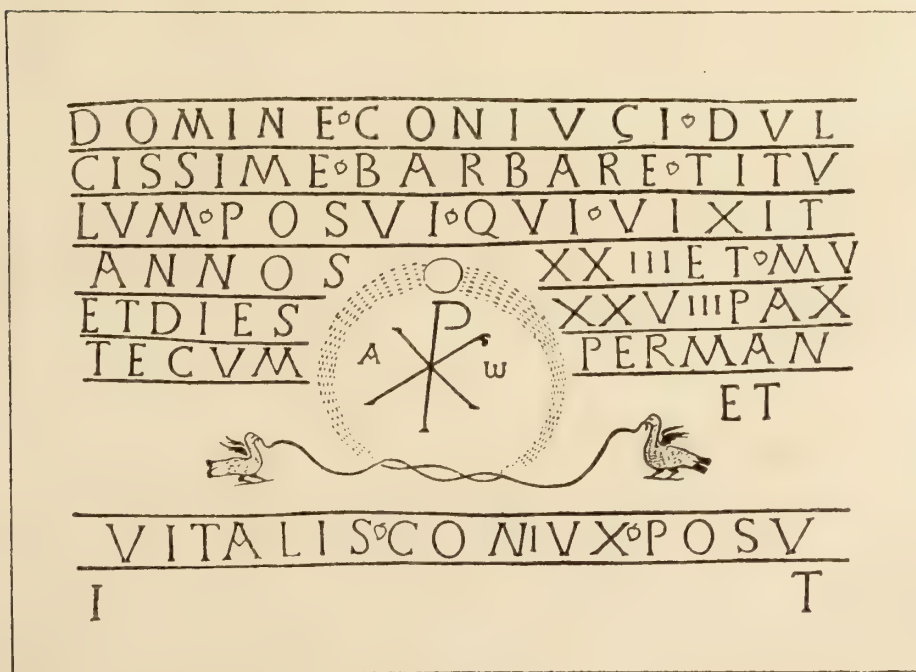 DOMINE◦CONIVÇI◦DVL
CISSIME◦BARBARE◦TITV
LVM◦POSVI◦QVI◦VIXIT
ANNOS XXIIIET◦MV
ETDIES XXVIIIPAX
TECVM A ω PERMAN
ET
VITALIS◦CONIVX◦POSV
I T